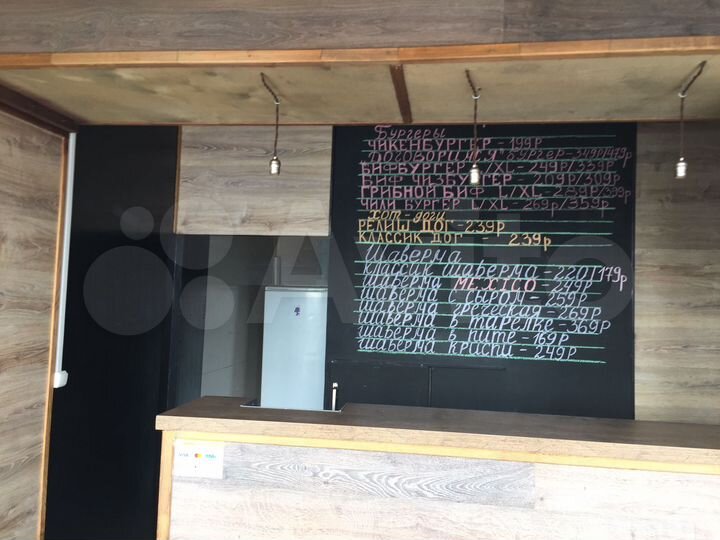 Бургеры
ЧИКЕНБУРГЕР - 199Р
"ДОГОВОРИМСЯ" БУРГЕР - 349Р/479Р
БИФБУРГЕР L/XL - 249Р/339Р
БИФ ЧИЗБУРГЕР - 209Р/309Р
ГРИБНОЙ БИФ L/XL - 289Р/399Р
ЧИЛИ БУРГЕР L/XL - 269Р/359Р
ХОТ-доги
РЕЛИШ ДОГ - 239Р
КЛАССИК ДОГ - 239Р
Шаверма
классик шаверма - 220Г 179Р
шаверма MEXICO - 249Р
шаверма с сыром - 259Р
шаверма греческая - 269Р
шаверма в тарелке - 369Р
шаверма в пите - 169Р
шаверма криспи - 249Р
VISA
Avito